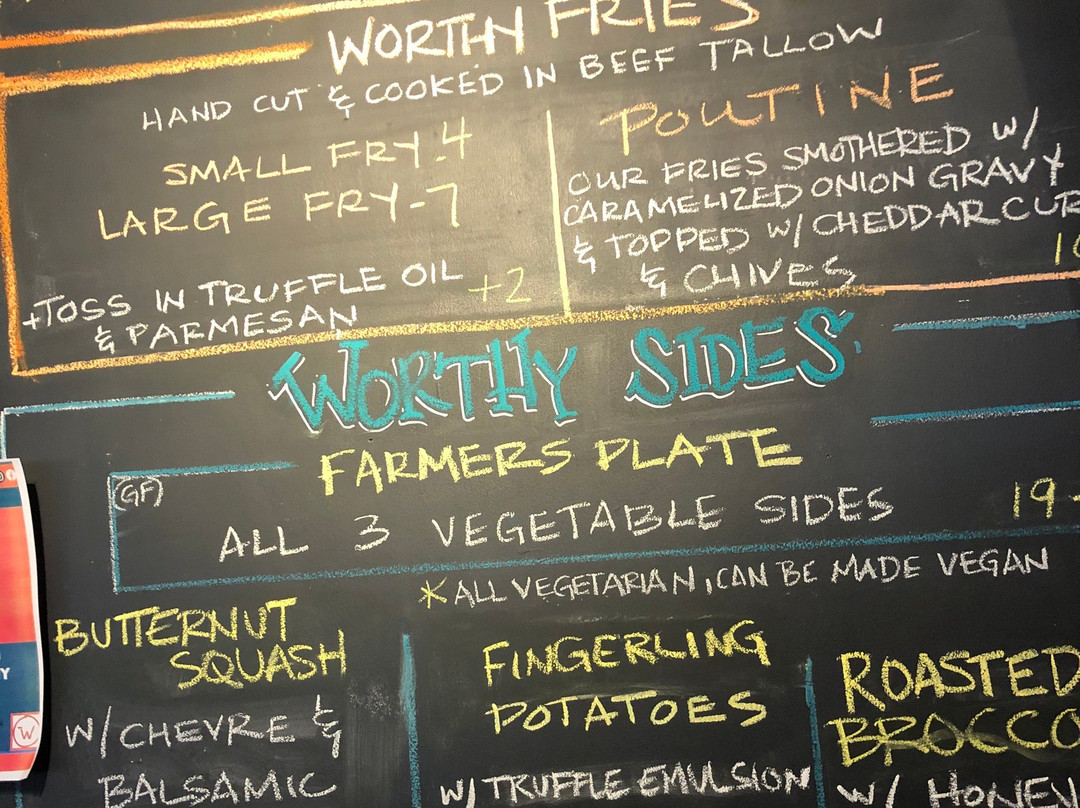 WORTHY FRIES
HAND CUT & COOKED IN BEEF TALLOW
SMALL FRY-4
LARGE FRY-7
+TOSS IN TRUFFLE OIL +2
& PARMESAN
POUTINE
OUR FRIES SMOTHERED W/
CARAMELIZED ONION GRAVY
& TOPPED W/ CHEDDAR CUR
& CHIVES
WORTHY SIDES
FARMERS PLATE
(GF)
ALL 3 VEGETABLE SIDES 19-
*ALL VEGETARIAN, CAN BE MADE VEGAN
BUTTERNUT
SQUASH
W/ CHEVRE &
BALSAMIC
FINGERLING
POTATOES
W/ TRUFFLE EMULSION
ROASTED
BROCCO
W/ HONEY
Y
W